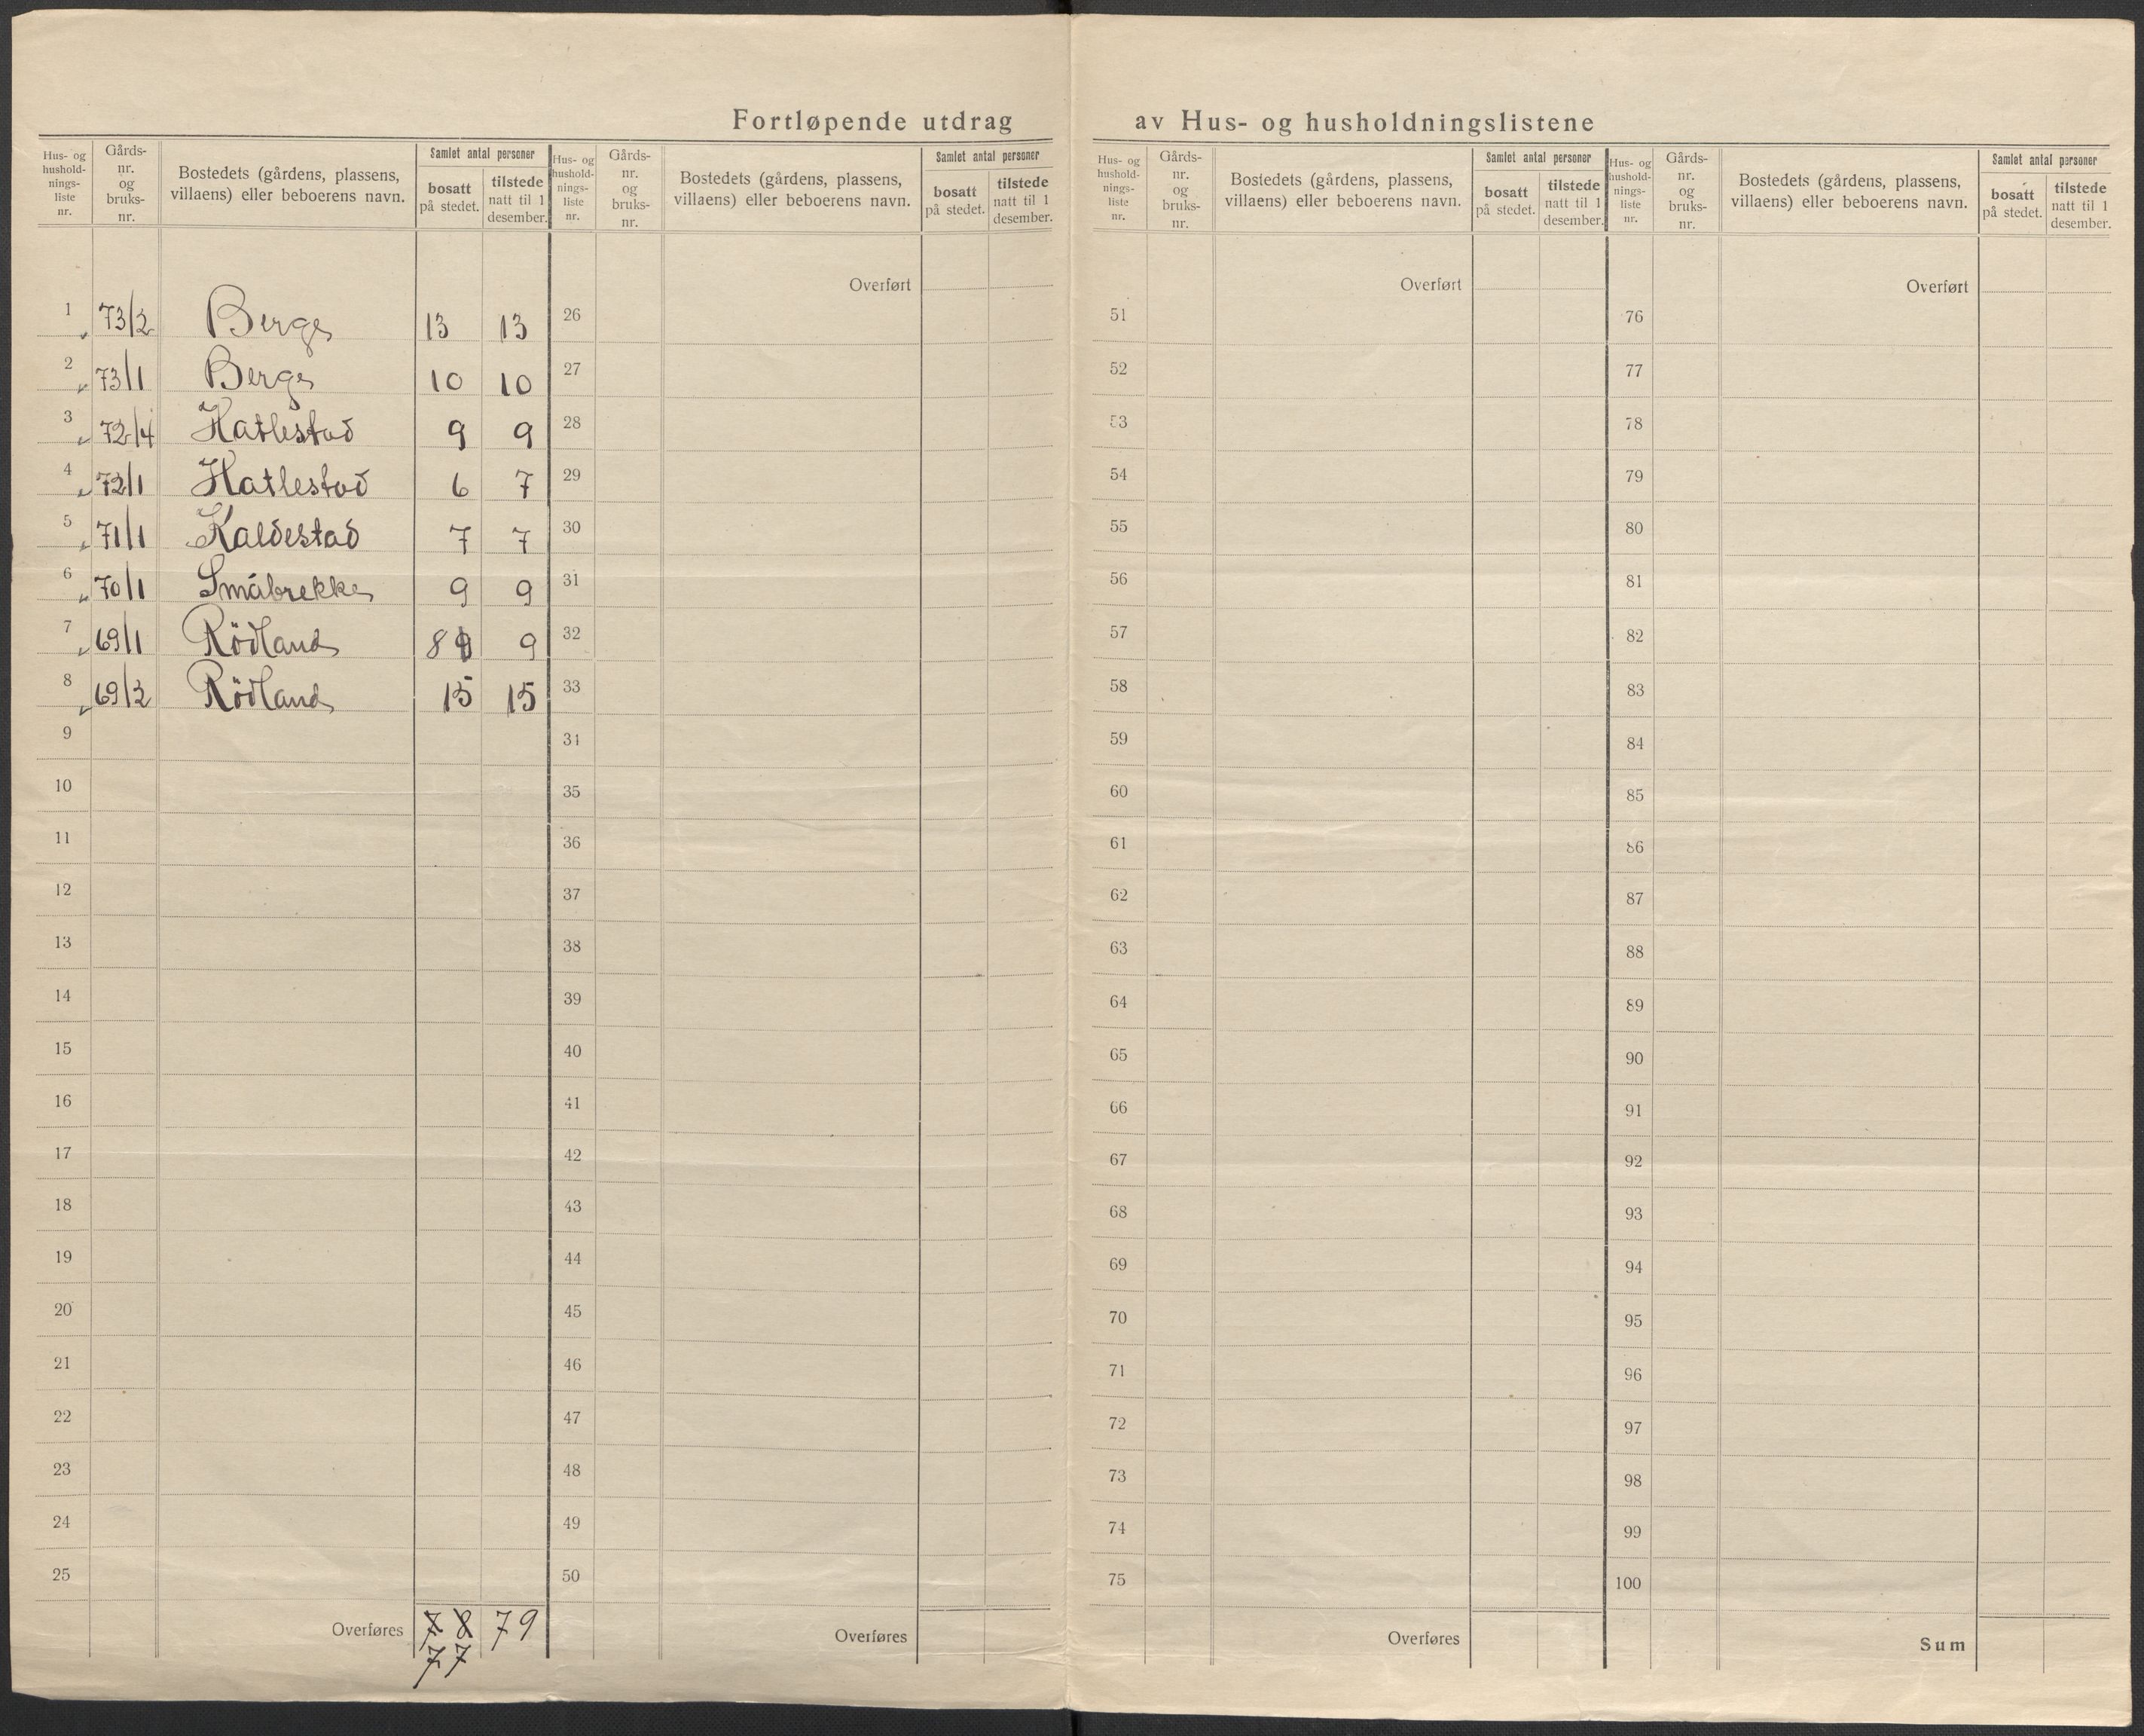 Fortløpende utdrag av Hus- og husholdningslistene
Hus- og hushold-nings-liste nr. Gårds-nr. og bruks-nr. Bostedets (gårdens, plassens, villaens) eller beboerens navn. Samlet antal personer bosatt på stedet. tilstede natt til 1 desember.
1 73/2 Berge 13 13
2 73/1 Berge 10 10
3 72/4 Hatlestad 9 9
4 72/1 Hatlestad 6 7
5 71/1 Kaldestad 7 7
6 70/1 Småbrekke 9 9
7 69/1 Rödland 8 9 9
8 69/2 Rödland 15 15
9
10
11
12
13
14
15
16
17
18
19
20
21
22
23
24
25
Overføres 78 79
77
Hus- og hushold-nings-liste nr. Gårds-nr. og bruks-nr. Bostedets (gårdens, plassens, villaens) eller beboerens navn. Samlet antal personer bosatt på stedet. tilstede natt til 1 desember.
Overført
26
27
28
29
30
31
32
33
34
35
36
37
38
39
40
41
42
43
44
45
46
47
48
49
50
Overføres
Hus- og hushold-nings-liste nr. Gårds-nr. og bruks-nr. Bostedets (gårdens, plassens, villaens) eller beboerens navn. Samlet antal personer bosatt på stedet. tilstede natt til 1 desember.
Overført
51
52
53
54
55
56
57
58
59
60
61
62
63
64
65
66
67
68
69
70
71
72
73
74
75
Overføres
Hus- og hushold-nings-liste nr. Gårds-nr. og bruks-nr. Bostedets (gårdens, plassens, villaens) eller beboerens navn. Samlet antal personer bosatt på stedet. tilstede natt til 1 desember.
Overført
76
77
78
79
80
81
82
83
84
85
86
87
88
89
90
91
92
93
94
95
96
97
98
99
100
Sum